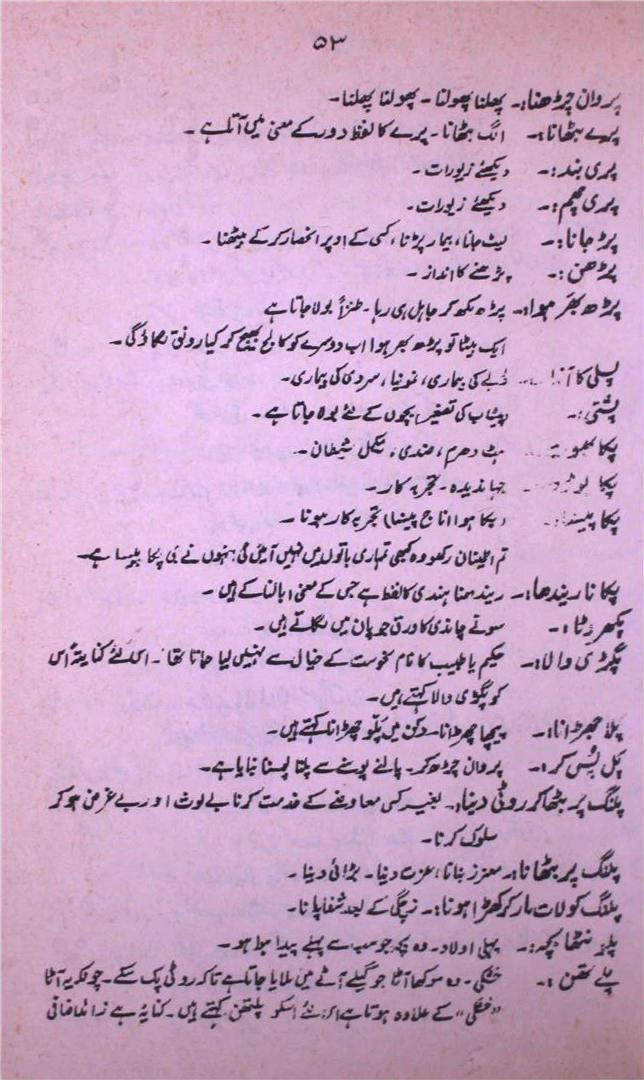 ۵۳
پروان چڑھنا:۔ پھلنا پھولنا۔ پھولنا پھلنا۔
پرے بٹھانا:۔ الگ بٹھانا۔ پرے کا لفظ دور کے معنی میں آتا ہے۔
پری بند:۔ دیکھئے زیورات۔
پری چھم:۔ دیکھئے زیورات۔
پڑ جانا:۔ لیٹ جانا، بیمار پڑنا، کسی کے اوپر انحصار کر کے بیٹھنا۔
پڑھن:۔ پڑھنے کا انداز۔
پڑھ بھر ہوا:۔ پڑھ لکھ کر جاہل ہی رہا۔ طنزاً بولا جاتا ہے
ایک بیٹا تو پڑھ بھر ہوا اب دوسرے کو کالج بھیج کر کیا رونق لگاؤ گی۔
پسلی کا ڈبے کی بیماری، نمونیا، سردی کی بیماری۔
پشتی:۔ پیشاب کی تصغیر بچوں کے لئے بولا جاتا ہے۔
پکا ہٹ دھرم، ضدی، شیطان۔
پکا جہاندیدہ۔ تجربہ کار۔
پکا پیسنا:۔ (پکا ہوا اناج پیسنا) تجربہ کار ہونا۔
تم اطمینان رکھو وہ کبھی تمہاری باتوں میں نہیں آئیں گی انہوں نے بھی پکا پیسا ہے۔
پکانا ریندھنا:۔ ریندھنا ہندی کا لفظ ہے جس کے معنی ابالنا کے ہیں۔
پکھروٹا:۔ سونے چاندی کا ورق جو پان میں لگاتے ہیں۔
پگڑی والا:۔ حکیم یا طبیب کا نام نحوست کے خیال سے نہیں لیا جاتا تھا۔ اس لئے کنایتہً اس
کو پگڑی والا کہتے ہیں۔
پلا چھڑانا:۔ پیچھا چھڑانا۔ دکن میں پلو چھڑانا کہتے ہیں۔
پل پُس کر:۔ پروان چڑھ کر۔ پالنے پوسنے سے پلنا پسنا بنایا ہے۔
پلنگ پر بٹھا کر روٹی دینا:۔ بغیر کسی معاوضے کے خدمت کرنا بے لوث اور بے غرض ہو کر
سلوک کرنا۔
پلنگ پر بٹھانا:۔ معزز بنانا، عزت دینا۔ بڑائی دینا۔
پلنگ کو لات مار کر کھڑا ہونا:۔ زچگی کے بعد شفا پانا۔
بچہ:۔ پہلی اولاد۔ وہ بچہ جو سب سے پہلے پیدا ہوا ہو۔
پلے تھن:۔ خشکی۔ وہ سوکھا آٹا جو گیلے آٹے میں ملایا جاتا ہے تاکہ روٹی پک سکے۔ چونکہ یہ آٹا
”خشکی“ کے علاوہ ہوتا ہے اس لئے اسکو پلیتھن کہتے ہیں۔ کنایہ ہے زائد اضافی